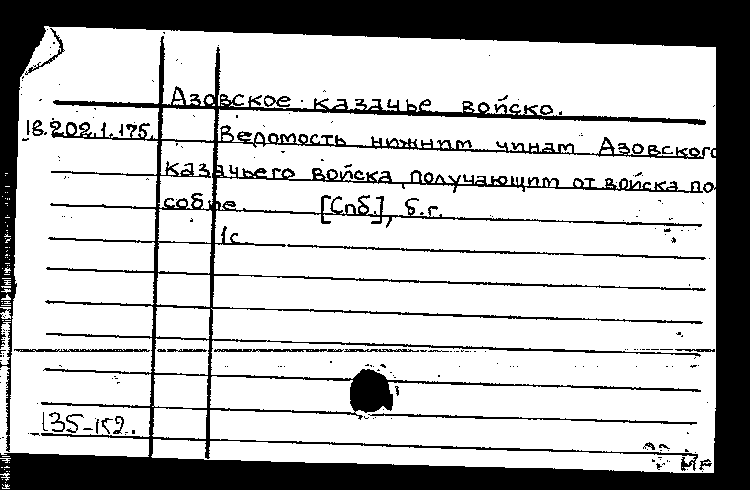 Азовское казачье войско.
18.202.1.175. Ведомость нижним чинам Азовского
казачьего войска, получающим от войска по
собие. [Спб.], б.г.
1с.
135-152.